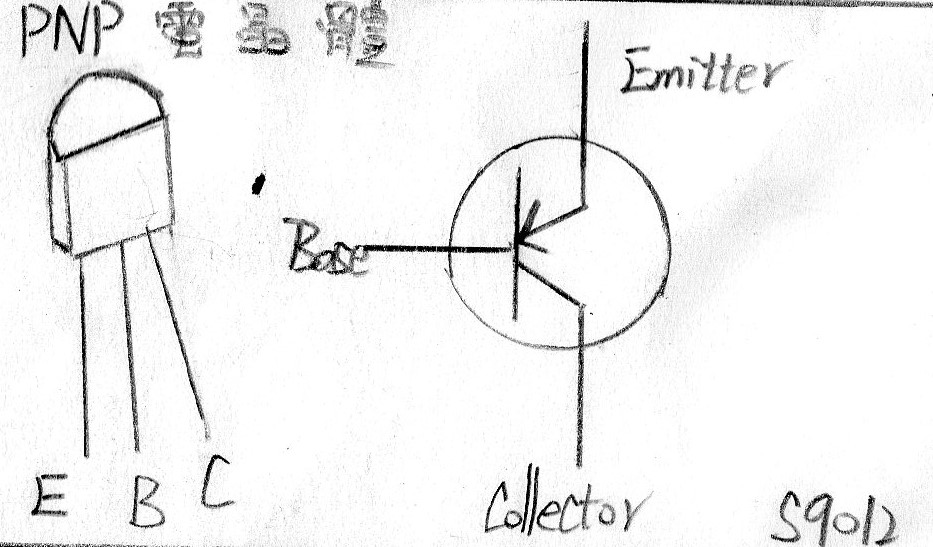 PNP 電晶體
Emitter
Base
E B C
Collector
S9012